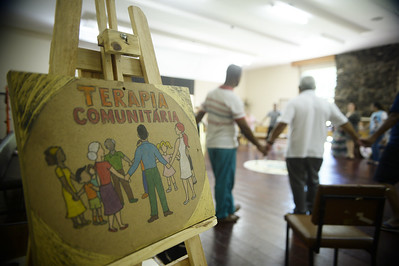 TERAPIA
COMUNITÁRIA